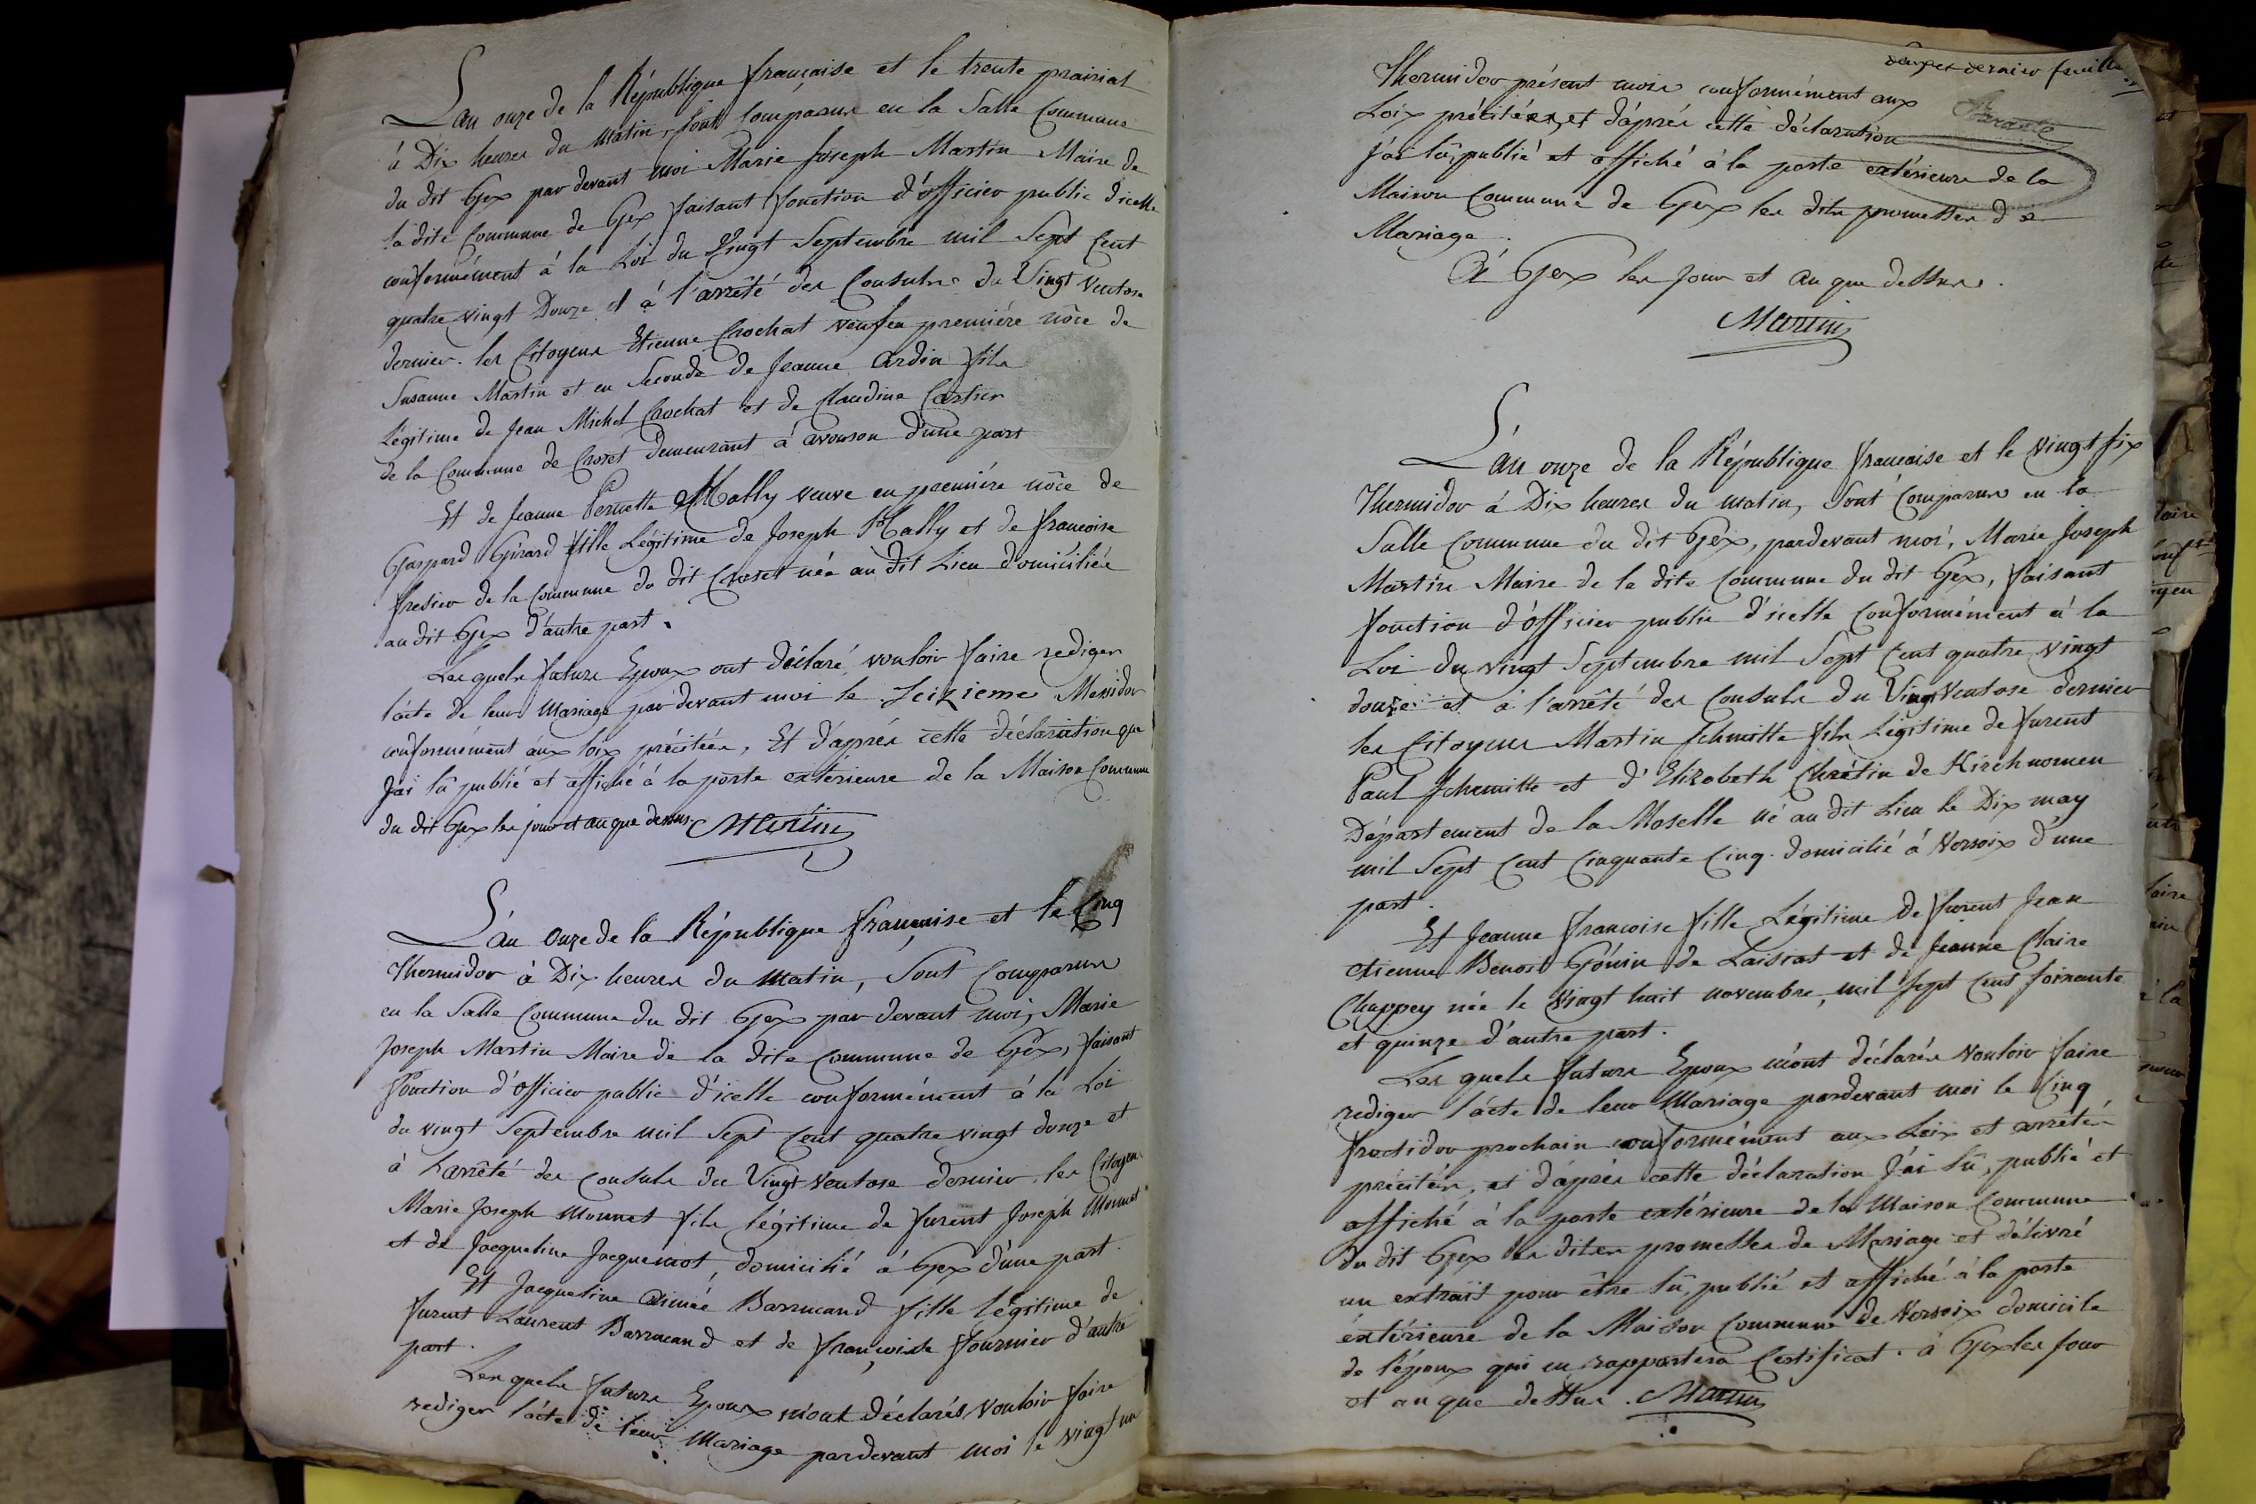 L'an onze de la République française et le trente prairial
à Dix heures du matin, sont comparus en la Salle Commune
du dit Gex par devant moi Marie Joseph Martin Maire de
la dite Commune de Gex faisant fonction d'officier public d'icelle
conformément à la Loi du Vingt Septembre mil Sept Cent
quatre vingt Douze et à l'arrêté des Consuls du Vingt Ventose
dernier. les Citoyens Etienne Crochat veuf en première nôce de
Susanne Martin et en Seconde de Jeanne Ardin fils
Légitime de Jean Michel Crochat et de Claudine Cartier
de la Commune de Crozet demeurant à avouson d'une part
Et de Jeanne Pernette Mally veuve en première nôce de
Gaspard Girard fille Légitime de Joseph Mally et de francoise
fresier de la Commune du dit Crozet née au dit Lieu domiciliée
au dit Gex d'autre part.
Les quels futurs Epoux ont déclaré vouloir faire rediger
l'acte de leur Mariage par devant moi le Seizieme Messidor
conformément aux loix précitées, Et d'après cette déclaration que
J'ai lû publié et affiché à la porte extérieure de la Maison Commune
du dit Gex les jour et an que dessus. Martin
L'an Onze de la République française et le Cinq
Thermidor à Dix heures du Matin, Sont Comparus
en la Salle Commune du dit Gex par devant moi, Marie
Joseph Martin Maire de la dite Commune de Gex, faisant
Fonction d'officier public d'icelle conformément à la Loi
du vingt Septembre mil Sept Cent quatre vingt douze et
à L'arrêté des Consuls du Vingt Ventose dernier, les Citoyens
Marie Joseph Monnet fils légitime de furent Joseph Monnet
et de Jacqueline Jacquemot, domicilié à Gex d'une part.
Et Jacqueline aimée Barrucand fille légitime de
furent Laurent Barrucand et de françoise fournier d'autre
part.
Les quels futurs Epoux m'ont déclarés Vouloir faire
rediger l'acte de leur Mariage pardevant moi le vingt un
deux et dernier feuillet
Thermidor présent mois conformément aux
Loix précitées, et d'après cette déclaration
j'ai lû, publié et affiché à la porte extérieure de la
Maison Commune de Gex les dites promesses de
Mariage.
à Gex les jour et an que dessus.
Martin
L'an onze de la République française et le vingt six
Thermidor à Dix heures du matin, Sont Comparus en la
Salle Commune du dit Gex, pardevant moi, Marie Joseph
Martin Maire de la dite Commune du dit Gex, faisant
fonction d'officier public d'icelle Conformément à la
Loi du vingt Septembre mil Sept Cent quatre vingt
douze et à l'arrêté des Consuls du Vingt Ventose dernier
les Citoyens Martin Schmitte fils Légitime de furent
Paul Schmitte et d'Elizabeth Chrétin de Kirchnomen
Département de la Moselle né au dit Lieu le Dix may
mil Sept Cent Cinquante Cinq. domicilié à Versoix d'une
part.
Et Jeanne francoise fille Légitime de furent Jean
etienne Benoit Gonin de Laisiat et de Jeanne Claire
Chappey née le Vingt huit novembre, mil Sept Cent soixante
et quinze d'autre part.
Les quels futurs Epoux m'ont déclarés vouloir faire
rediger l'acte de leur Mariage pardevant moi le Cinq
fructidor prochain conformément aux Loix et arrêtés
précités, et d'après cette déclaration J'ai lû, publié et
affiché à la porte extérieure de la Maison Commune
du dit Gex les dites promesses de Mariage et délivré
un extrait pour être lû, publié et affiché à la porte
éxtérieure de la Maison Commune de Versoix domicile
de l'époux qui en rapportera Certificat. à Gex les jour
et an que dessus. Martin